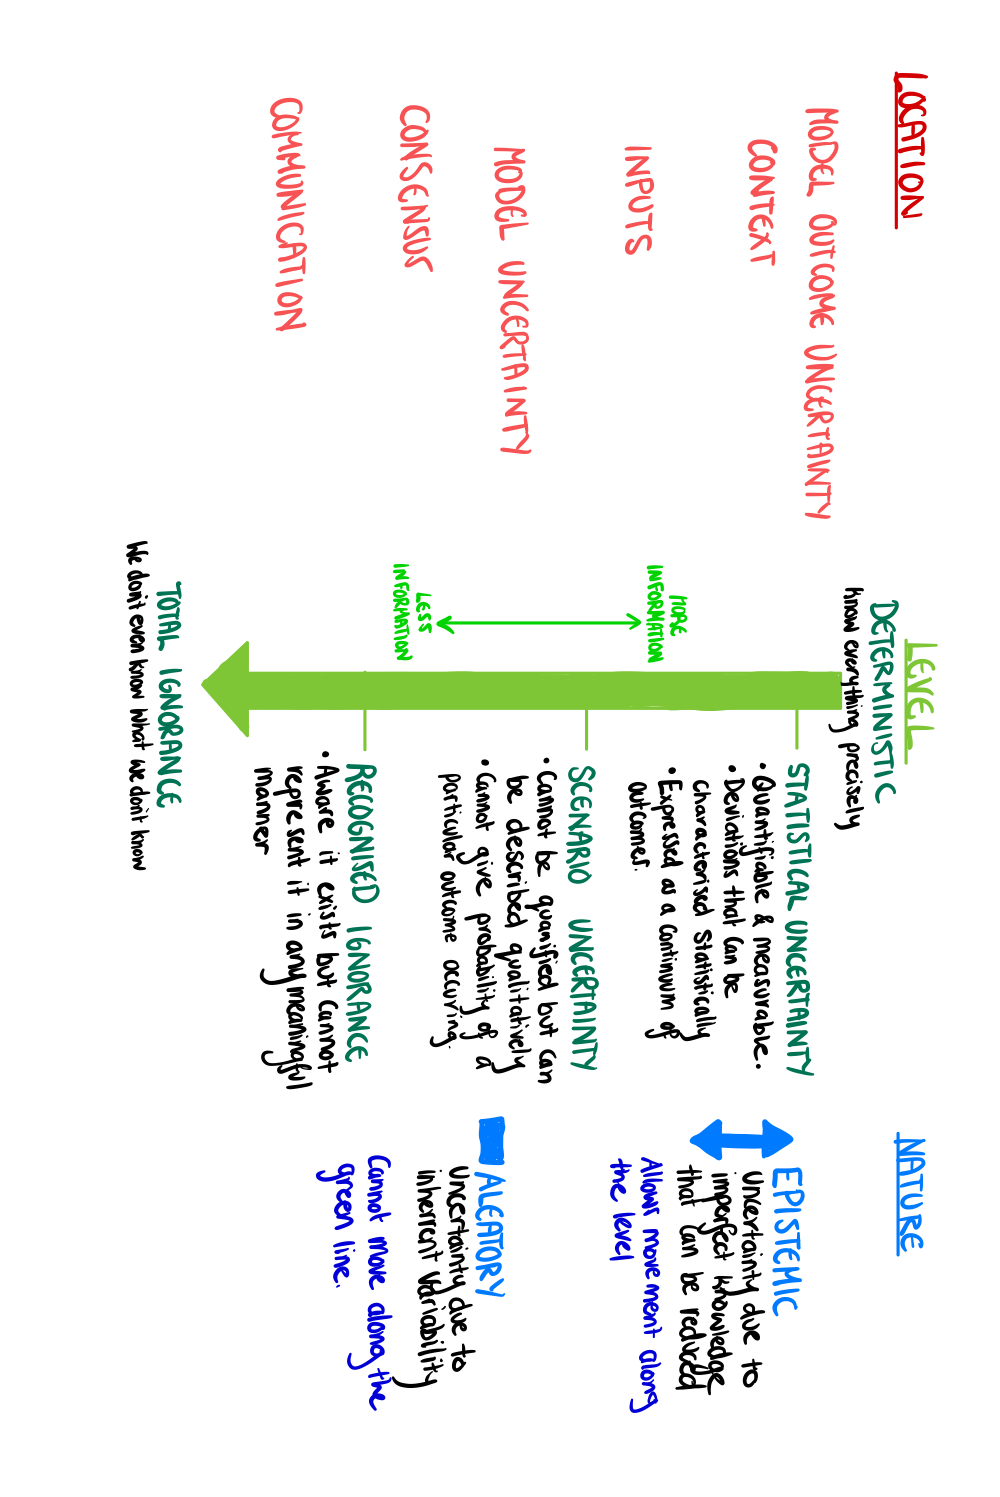 LOCATION
MODEL OUTCOME UNCERTAINTY
CONTEXT
INPUTS
MODEL UNCERTAINTY
CONSENSUS
COMMUNICATION
LEVEL
DETERMINISTIC
Know everything precisely
MORE
INFORMATION
LESS
INFORMATION
STATISTICAL UNCERTAINTY
• Quantifiable & measurable.
• Deviations that can be
characterised statistically
• Expressed as a continuum of
outcomes.
SCENARIO UNCERTAINTY
• Cannot be quanified but can
be described qualitatively
• Cannot give probability of a
particular outcome occuring.
RECOGNISED IGNORANCE
• Aware it exists but cannot
represent it in any meaningful
manner
TOTAL IGNORANCE
We don't even know what we don't know
NATURE
EPISTEMIC
Uncertainty due to
imperfect knowledge
that can be reduced
Allows movement along
the level
ALEATORY
Uncertainty due to
inherrent variability
Cannot move along the
green line.